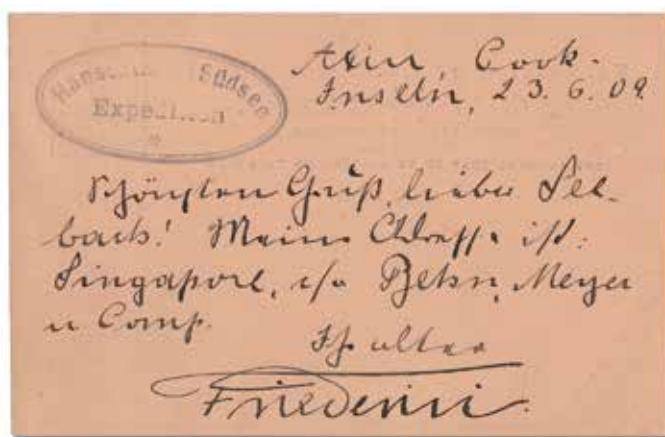 Hanseatische Südsee
Expedition
Atiu, Cook-
Inseln, 23. 6. 09.
Schönsten Gruß, lieber Sel-
bach! Meine Adresse ist:
Singapore, c/o Behn, Meyer
u Comp.
Ihr alter
Friederici.